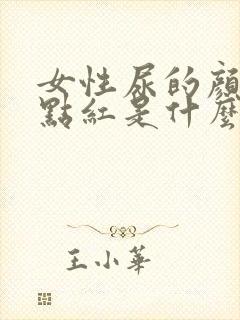 女性尿的顏
點紅是什麼
王小華